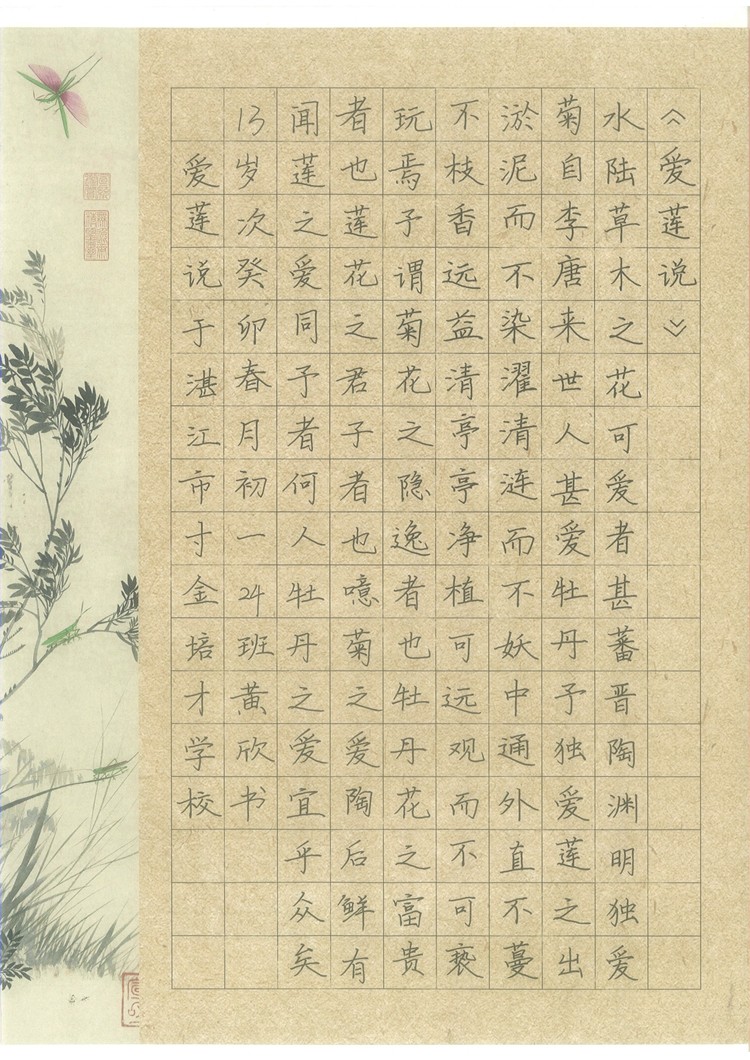 《爱莲说》
水陆草木之花可爱者甚蕃晋陶渊明独爱
菊自李唐来世人甚爱牡丹予独爱莲之出
淤泥而不染濯清涟而不妖中通外直不蔓
不枝香远益清亭亭净植可远观而不可亵
玩焉予谓菊花之隐逸者也牡丹花之富贵
者也莲花之君子者也噫菊之爱陶后鲜有
闻莲之爱同予者何人牡丹之爱宜乎众矣
13岁次癸卯春月初一24班黄欣书
爱莲说于湛江市寸金培才学校